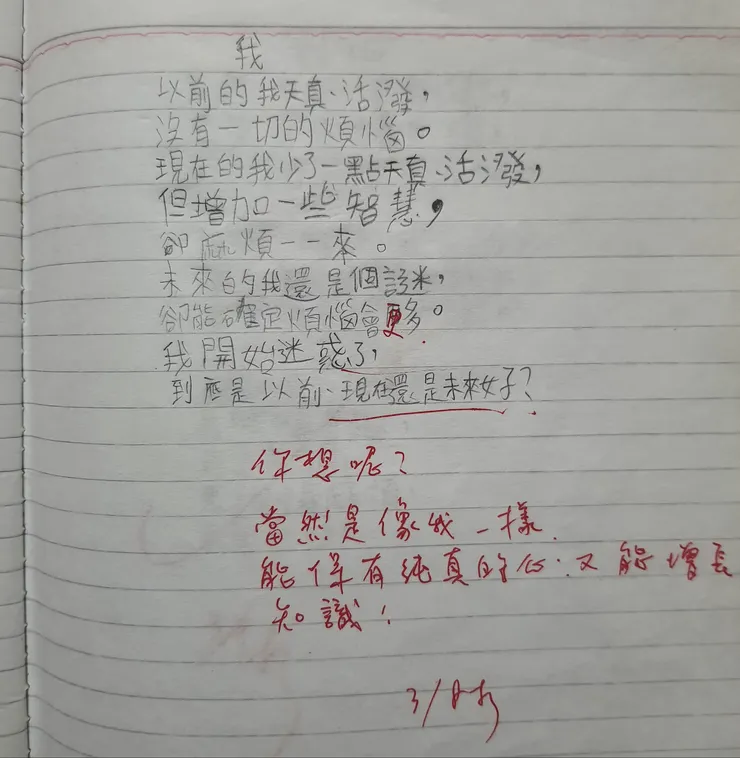 我
以前的我天真、活潑，
沒有一切的煩惱。
現在的我少了一點天真、活潑，
但增加一些智慧，
卻麻煩一一來。
未來的我還是個謎，
卻能確定煩惱會更多。
我開始迷惑了，
到底是以前、現在還是未來好？
你想呢？
當然是像我一樣，
能保有純真的心，又能增長
知識！
3/